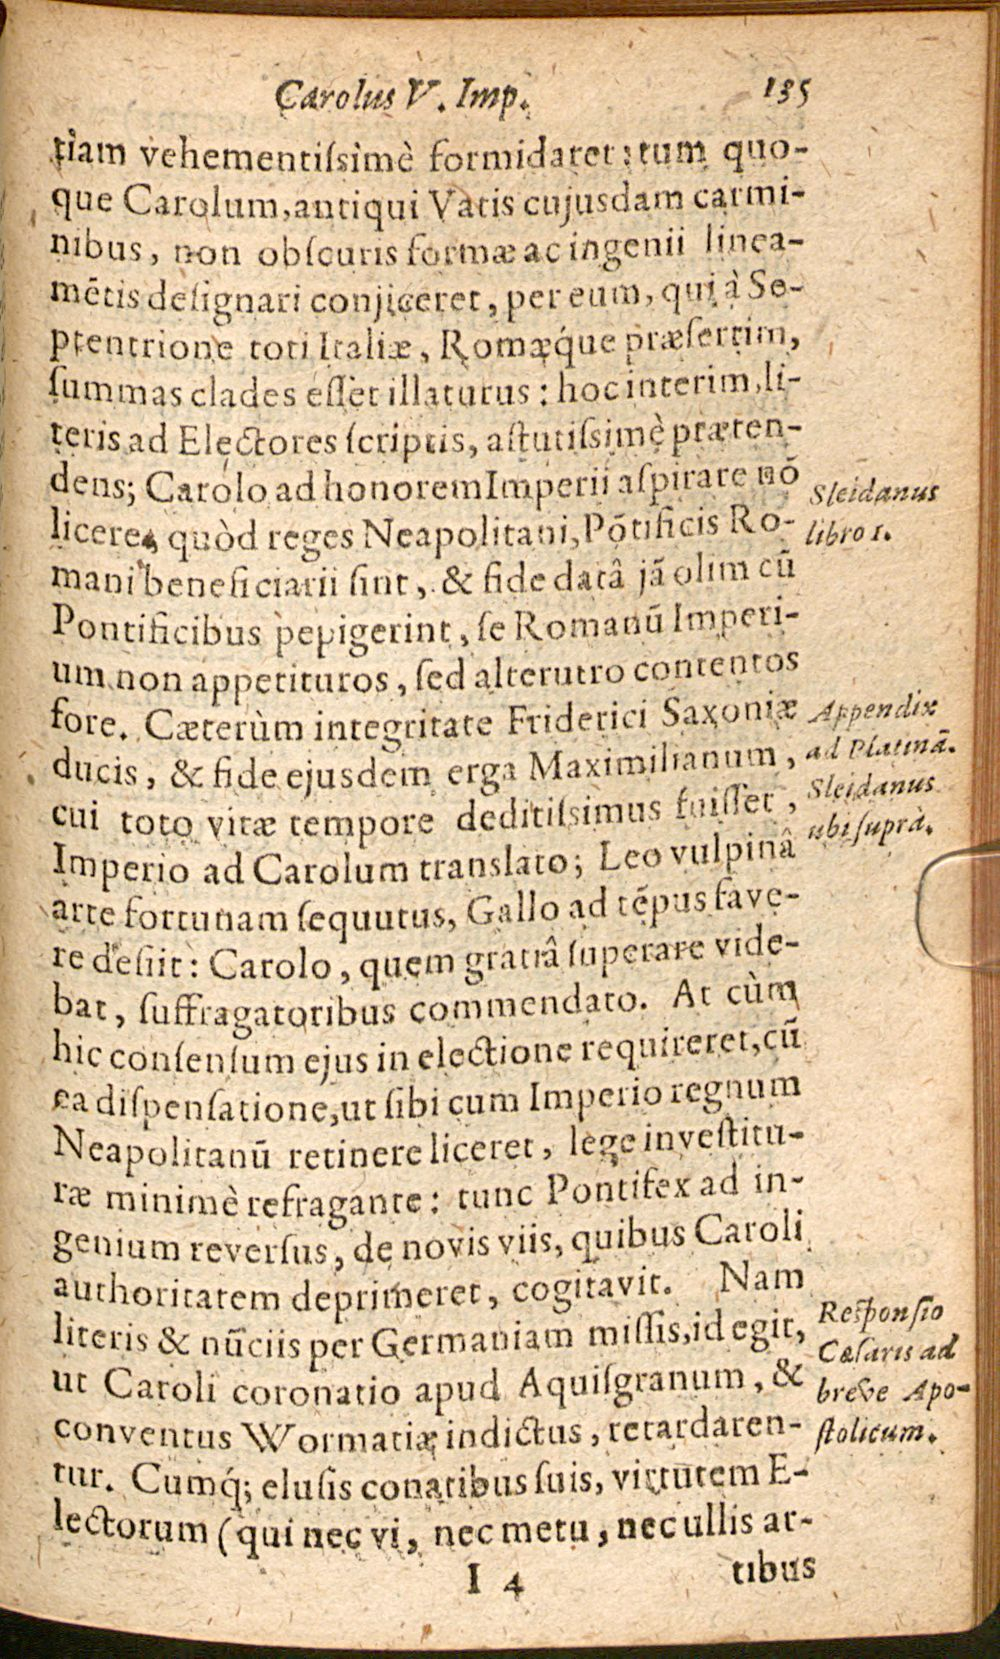 Carolus V. Imp. 135
tiam vehementiſsimè formidaret; tum quo-
que Carolum, antiqui Vatis cujusdam carmi-
nibus, non obſcuris formæ ac ingenii linea-
mētis deſignari conjiceret, per eum, qui à Se-
ptentrione toti Italiæ, Romæq́ue præſertim,
ſummas clades eſſet illaturus: hoc interim, li-
teris ad Electores ſcriptis, aſtutiſsimè præten-
dens; Carolo ad honorem Imperii aſpirare nō
licere, quòd reges Neapolitani, Pōtificis Ro-
mani beneficiarii ſint, & fide datâ jā olim cū
Pontificibus pepigerint, ſe Romanū Imperi-
um non appetituros, ſed alterutro contentos
fore. Cæterùm integritate Friderici Saxoniæ
ducis, & fide ejusdem erga Maximilianum,
cui toto vitæ tempore deditiſsimus fuiſſet,
Imperio ad Carolum translato; Leo vulpinâ
arte fortunam ſequutus, Gallo ad tēpus fave-
re deſiit: Carolo, quem gratiâ ſuperare vide-
bat, ſuffragatoribus commendato. At cùm
hic conſenſum ejus in electione requireret, cū
ea diſpenſatione, ut ſibi cum Imperio regnum
Neapolitanū retinere liceret, lege inveſtitu-
ræ minimè refragante: tunc Pontifex ad in-
genium reverſus, de novis viis, quibus Caroli
authoritatem deprimeret, cogitavit. Nam
literis & nūciis per Germaniam miſſis, id egit,
ut Caroli coronatio apud Aquiſgranum, &
conventus Wormatiæ indictus, retardaren-
tur. Cumq́; eluſis conatibus ſuis, virtutem E-
lectorum (qui nec vi, nec metu, nec ullis ar-
I 4 tibus
Sleidanus
libro 1.
Appendix
ad Platinā.
Sleidanus
ubi ſuprà.
Reſponſio
Cæſaris ad
breve Apo-
ſtolicum.